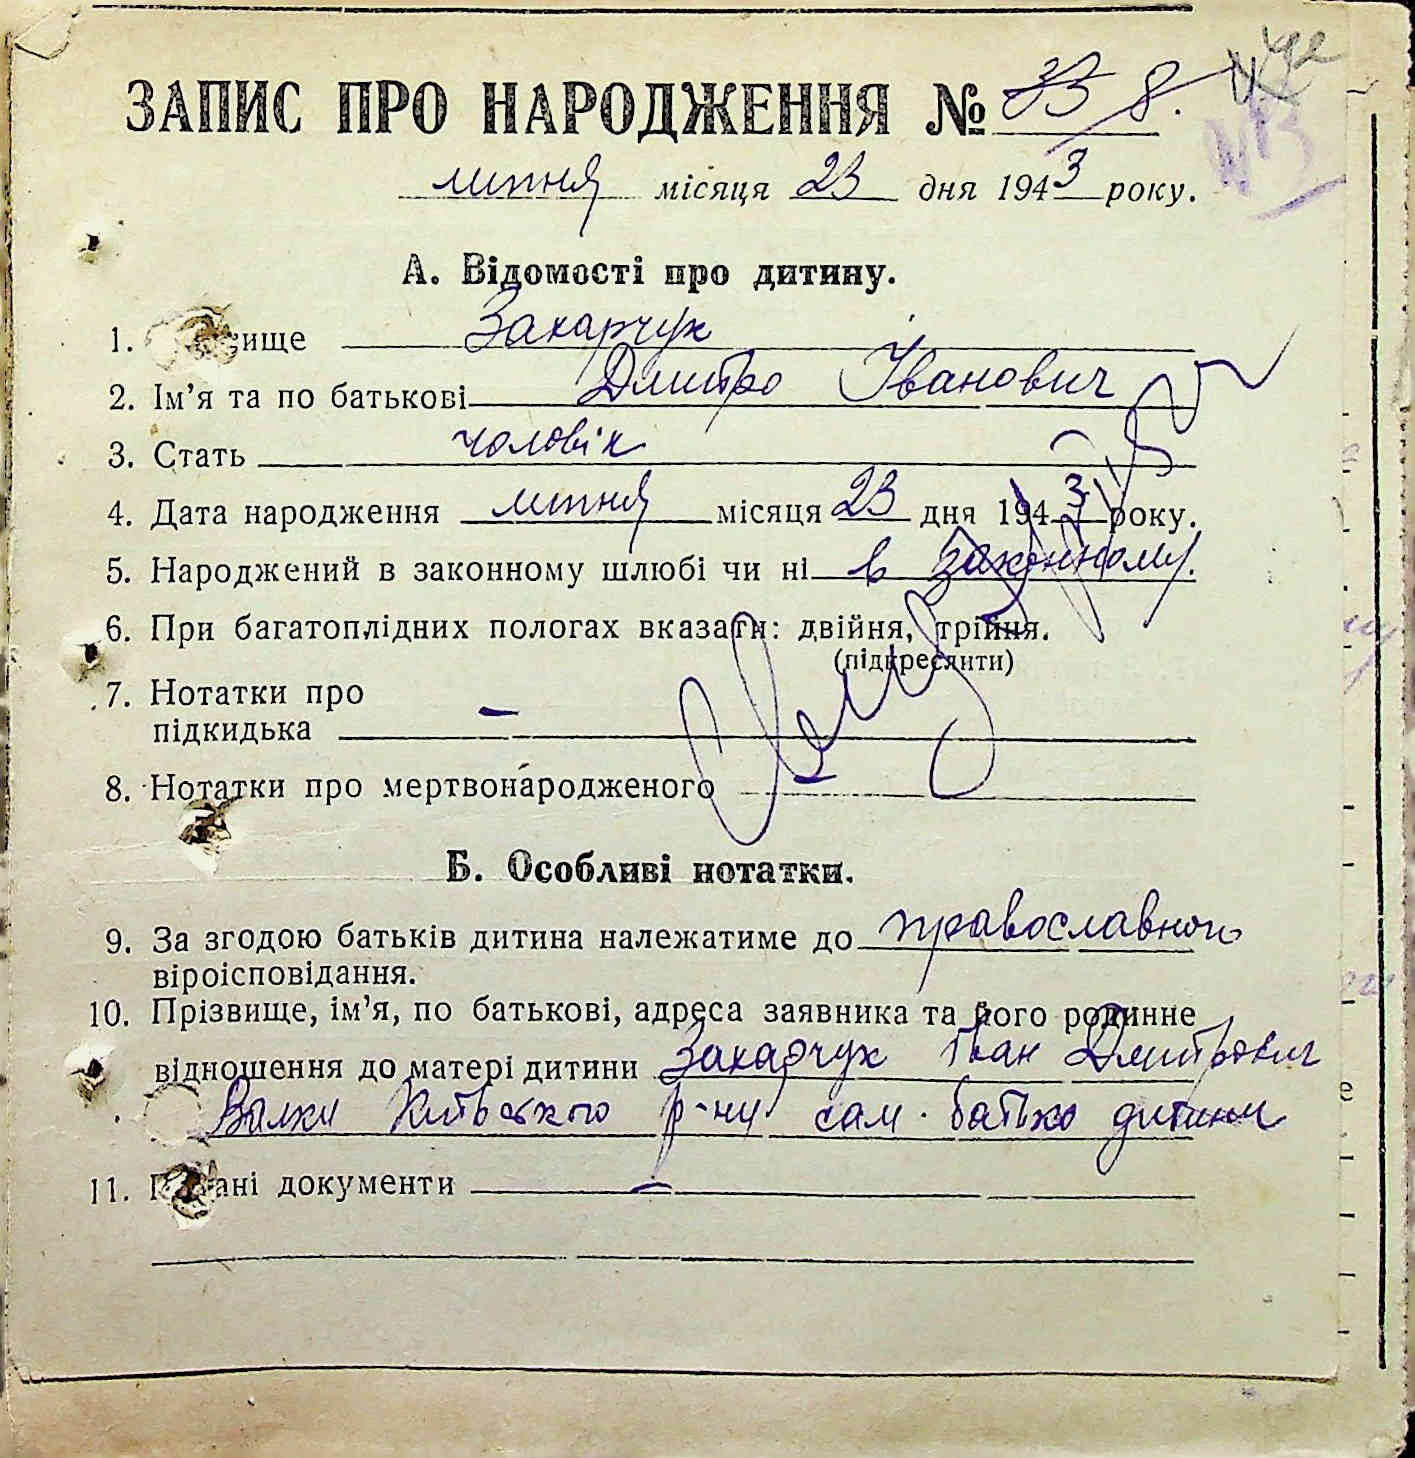 ЗАПИС ПРО НАРОДЖЕННЯ № 33 8.
липня місяця 23 дня 1943 року.
А. Відомості про дитину.
1. ище Захарчук
2. Ім'я та по батькові Дмитро Іванович
3. Стать чоловік
4. Дата народження липня місяця 23 дня 1943 року.
5. Народжений в законному шлюбі чи ні в законному.
6. При багатоплідних пологах вказати: двійня, трійня.
(підкреслити)
7. Нотатки про
підкидька —
8. Нотатки про мертвонародженого
Б. Особливі нотатки.
9. За згодою батьків дитина належатиме до православного
віроісповідання.
10. Прізвище, ім'я, по батькові, адреса заявника та його родинне
відношення до матері дитини Захарчук Іван Дмитрович
р-ну сам батько дитини
11. ані документи —